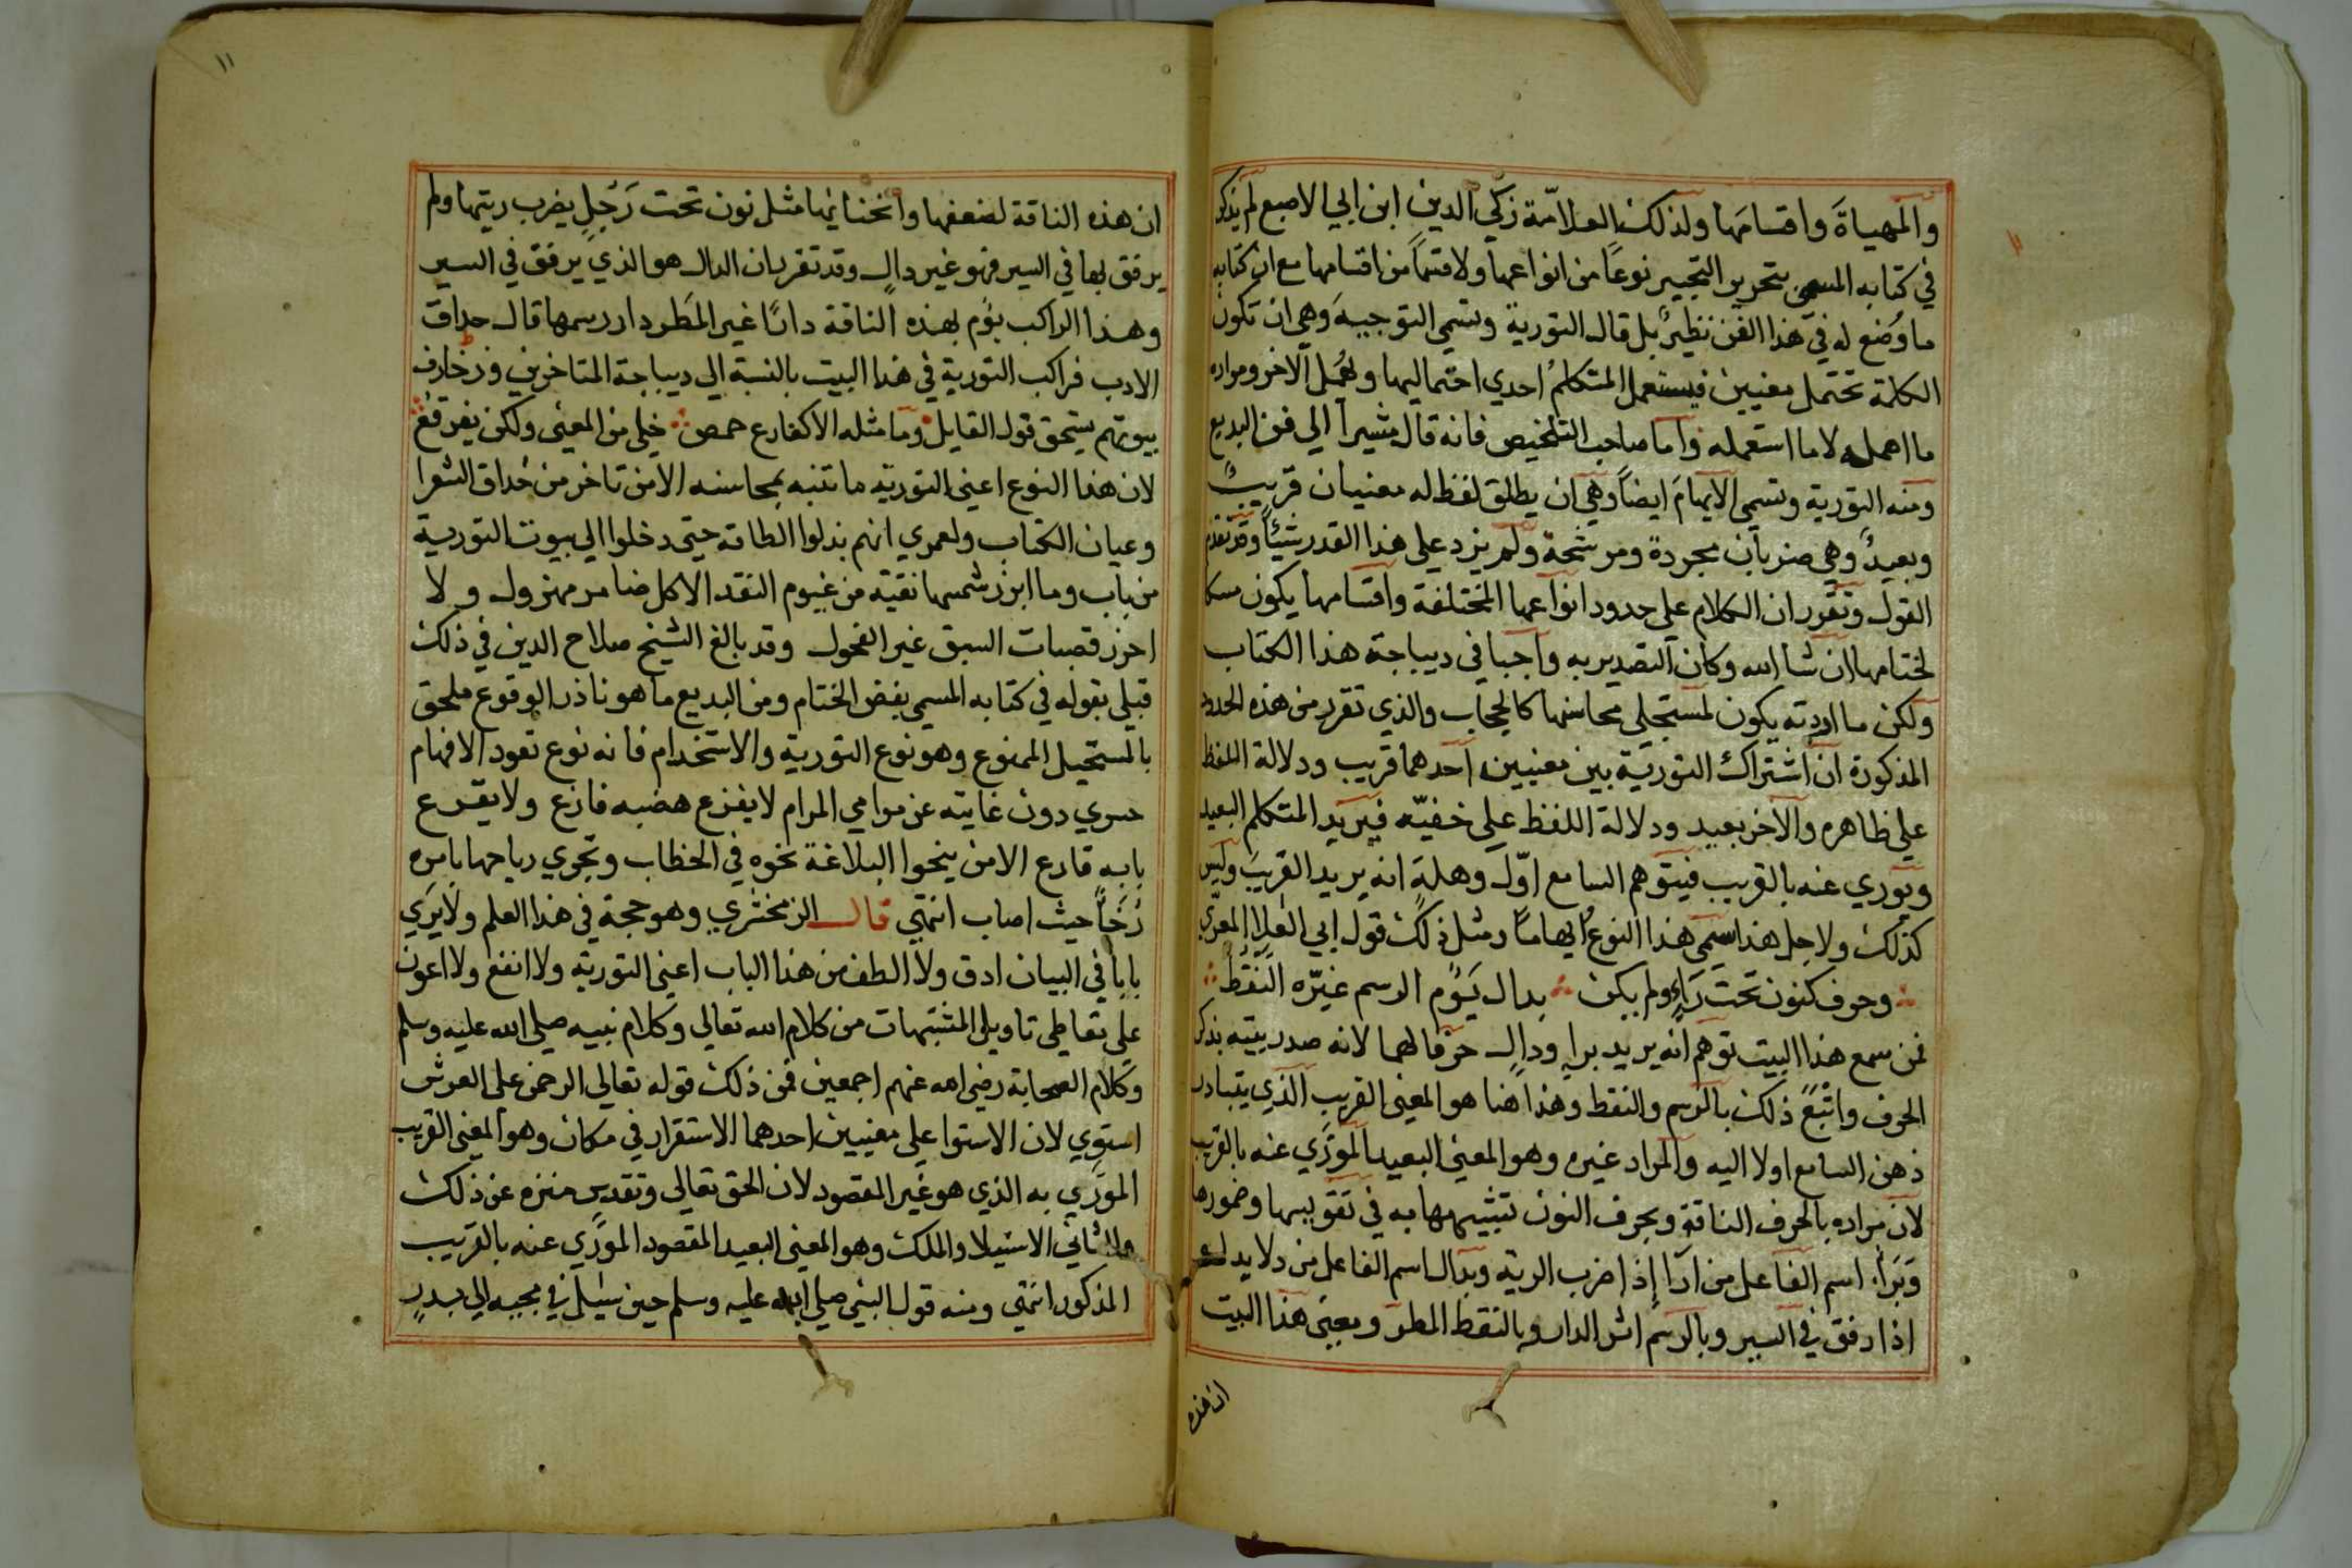 والمهياة واقسامها ولذلك العلامة زكي الدين ابن ابي الاصبع لم يذكر
في كتابه المسمى بتحرير التحبير نوعاً من انواعها ولا قسماً من اقسامها مع ان كتابه
ما وضع له في هذا الفن نظير بل قال التورية وتسمى التوجيه وهي ان تكون
الكلمة تحتمل معنيين فيستعمل المتكلم احدي احتماليها ويهمل الاخر ومراده
ما اهمله لا ما استعمله واما صاحب التلخيص فانه قال مشيرا الي فن البديع
ومنه التورية وتسمى الايهام ايضاً وهي ان يطلق لفظ له معنيان قريب
وبعيد وهي ضربان مجردة ومرشحة ولم يزد على هذا القدر شيئاً وقد تقدم
القول وتقرر ان الكلام على حدود انواعها المختلفة واقسامها يكون مسكا
لختامها ان شا الله وكان التصدير به واجبا في ديباجة هذا الكتاب
ولكن ما اردته يكون لمستجلي محاسنها كالحجاب والذي تقرر من هذه الحدود
المذكورة ان اشتراك التورية بين معنيين احدهما قريب ودلالة اللفظ
على ظاهره والآخر بعيد ودلالة اللفظ على خفيّه فيريد المتكلم البعيد
ويوري عنه بالقريب فيتوهم السامع اوّل وهلة انه يريد القريب وليس
كذلك ولاجل هذا سمي هذا النوع ايهاماً ومثل ذلك قول ابي العلا المعري
وحرف كنون تحت رَاءٍ ولم يكن بدال يَؤُم الرسم غيّره النَقْطُ
فمن سمع هذا البيت توهم انه يريد برا ودال حرفا الهجا لانه صدر بيته بذكر
الحرف واتبع ذلك بالرسم والنقط وهذا هنا هو المعنى القريب الذي يتبادر
ذهن السامع اولا اليه والمراد غيره وهو المعنى البعيد المورّي عنه بالقريب
لان مراده بالحرف الناقة وبحرف النون تشبيهها به في تقويسها وضمورها
وبَرا اسم الفاعل من ارا إذا ضرب الرية وبدال اسم الفاعل من دلا يدلو
اذا رفق في السير وبالرسم اثر الدار وبالنقط المطر ومعنى هذا البيت
ان هذه
١١
ان هذه الناقة لضعفها وانحنايها مثل نون تحت رَجُلٍ يضرب ريتها ولم
يرفق بها في السير فهو غير دالٍ وقد تقرر بان الدال هو الذي يرفق في السير
وهذا الراكب يؤم بهذه الناقة داراً غير المطر دار رسمها قال حداق
الادب فراكب التورية في هذا البيت بالنسبة الى ديباجة المتاخرين وزخارف
بيوتهم يستحق قول القايل وما مثله الا كفارغ حمص خلي من المعنى ولكن يفرقع
لان هذا النوع اعني التورية ما تنبه لمحاسنه الا من تاخر من حداق الشعرا
وعيان الكتاب ولعمري انهم بذلوا الطاقة حتى دخلوا الي بيوت التورية
من باب وما ابرز شمسها نقية من غيوم النقد الا كل ضامر مهزول ولا
احرز قصبات السبق غير الفحول وقد بالغ الشيخ صلاح الدين في ذلك
قبلي بقوله في كتابه المسمى بفض الختام ومن البديع ما هو نادر الوقوع ملحق
بالمستحيل الممنوع وهو نوع التورية والاستخدام فانه نوع تعود الافهام
حسري دون غايته عن مرامي المرام لا يفرع هضبه فارع ولا يقرع
بابه قارع الا من ينحوا البلاغة نحوه في الخطاب وتجري رياحها بامره
رُخَاً حيث اصاب انتهى قال الزمخشري وهو حجة في هذا العلم ولا يرَي
باباً في البيان ادق ولا الطف من هذا الباب اعني التورية ولا انفع ولا اعون
على تعاطي تاويل المشتبهات من كلام الله تعالي وكلام نبيه صلى الله عليه وسلم
وكلام الصحابة رضي الله عنهم اجمعين فمن ذلك قوله تعالي الرحمن على العرش
استوي لان الاستوا على معنيين احدهما الاستقرار في مكان وهو المعنى القريب
المورَّي به الذي هو غير المقصود لان الحق تعالى وتقدس منزه عن ذلك
والثاني الاستيلا والملك وهو المعنى البعيد المقصود المورَّي عنه بالقريب
المذكور انتهى ومنه قول النبي صلى الله عليه وسلم حين سئل في مجيه الي بدر